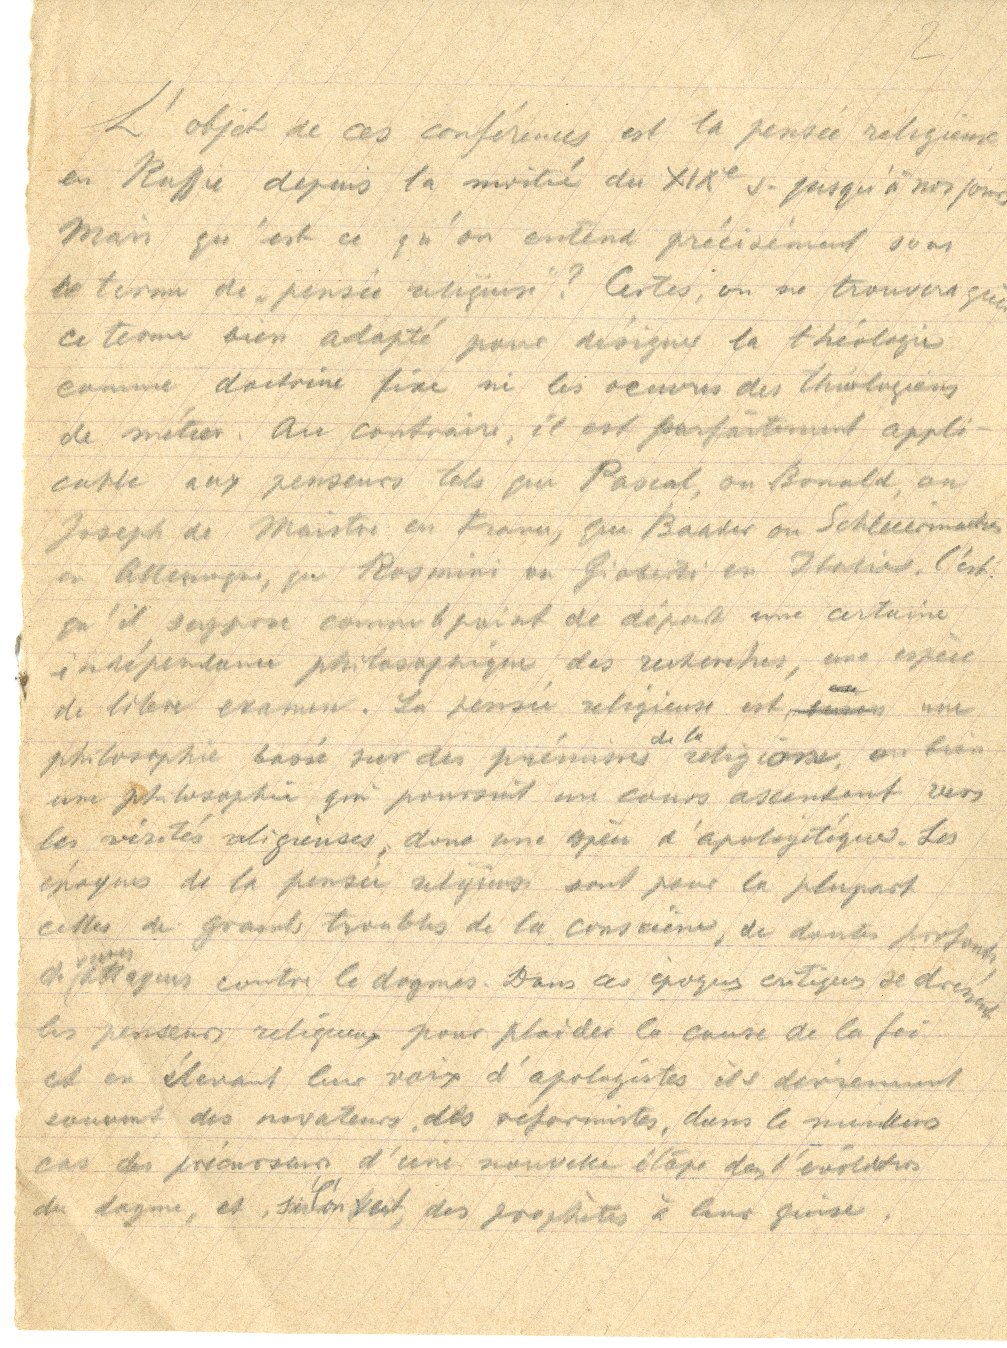 2
L'objet de ces conférences est la pensée religieuse
en Russie depuis la moitié du XIXe s. jusqu'à nos jours
Mais qu'est ce qu'on entend précisément sous
le terme de „pensée religieuse"? Certes, on ne trouvera guère
ce terme bien adapté pour désigner la théologie
comme doctrine fixe ni les oeuvres des théologiens
de métier. Au contraire, il est parfaitement appli-
cable aux penseurs tels que Pascal, ou Bonald, ou
Joseph de Maistre en France, que Baader ou Schleiermacher
en Allemagne, que Rosmini ou Gioberti en Italie. C'est
qu'il suppose comme point de départ une certaine
indépendance philosophique des recherches, une espèce
de libre examen. La pensée religieuse est une
philosophie basée sur des prémisses de la religion, ou bien
une philosophie qui poursuit un cours ascendant vers
les vérités religieuses, donc une apologétique. Les
époques de la pensée religieuse sont pour la plupart
celles de grands troubles de la conscience, de doutes profonds,
de vives attaques contre le dogmes. Dans ces époques critiques se dressent
les penseurs religieux pour plaider la cause de la foi
et en élevant leur voix d'apologistes ils deviennent
souvent des novateurs, des reformistes, dans le meilleurs
cas des précurseurs d'une nouvelle étape dans l'évolution
du dogme, et, si l'on veut, des prophètes à leur guise.